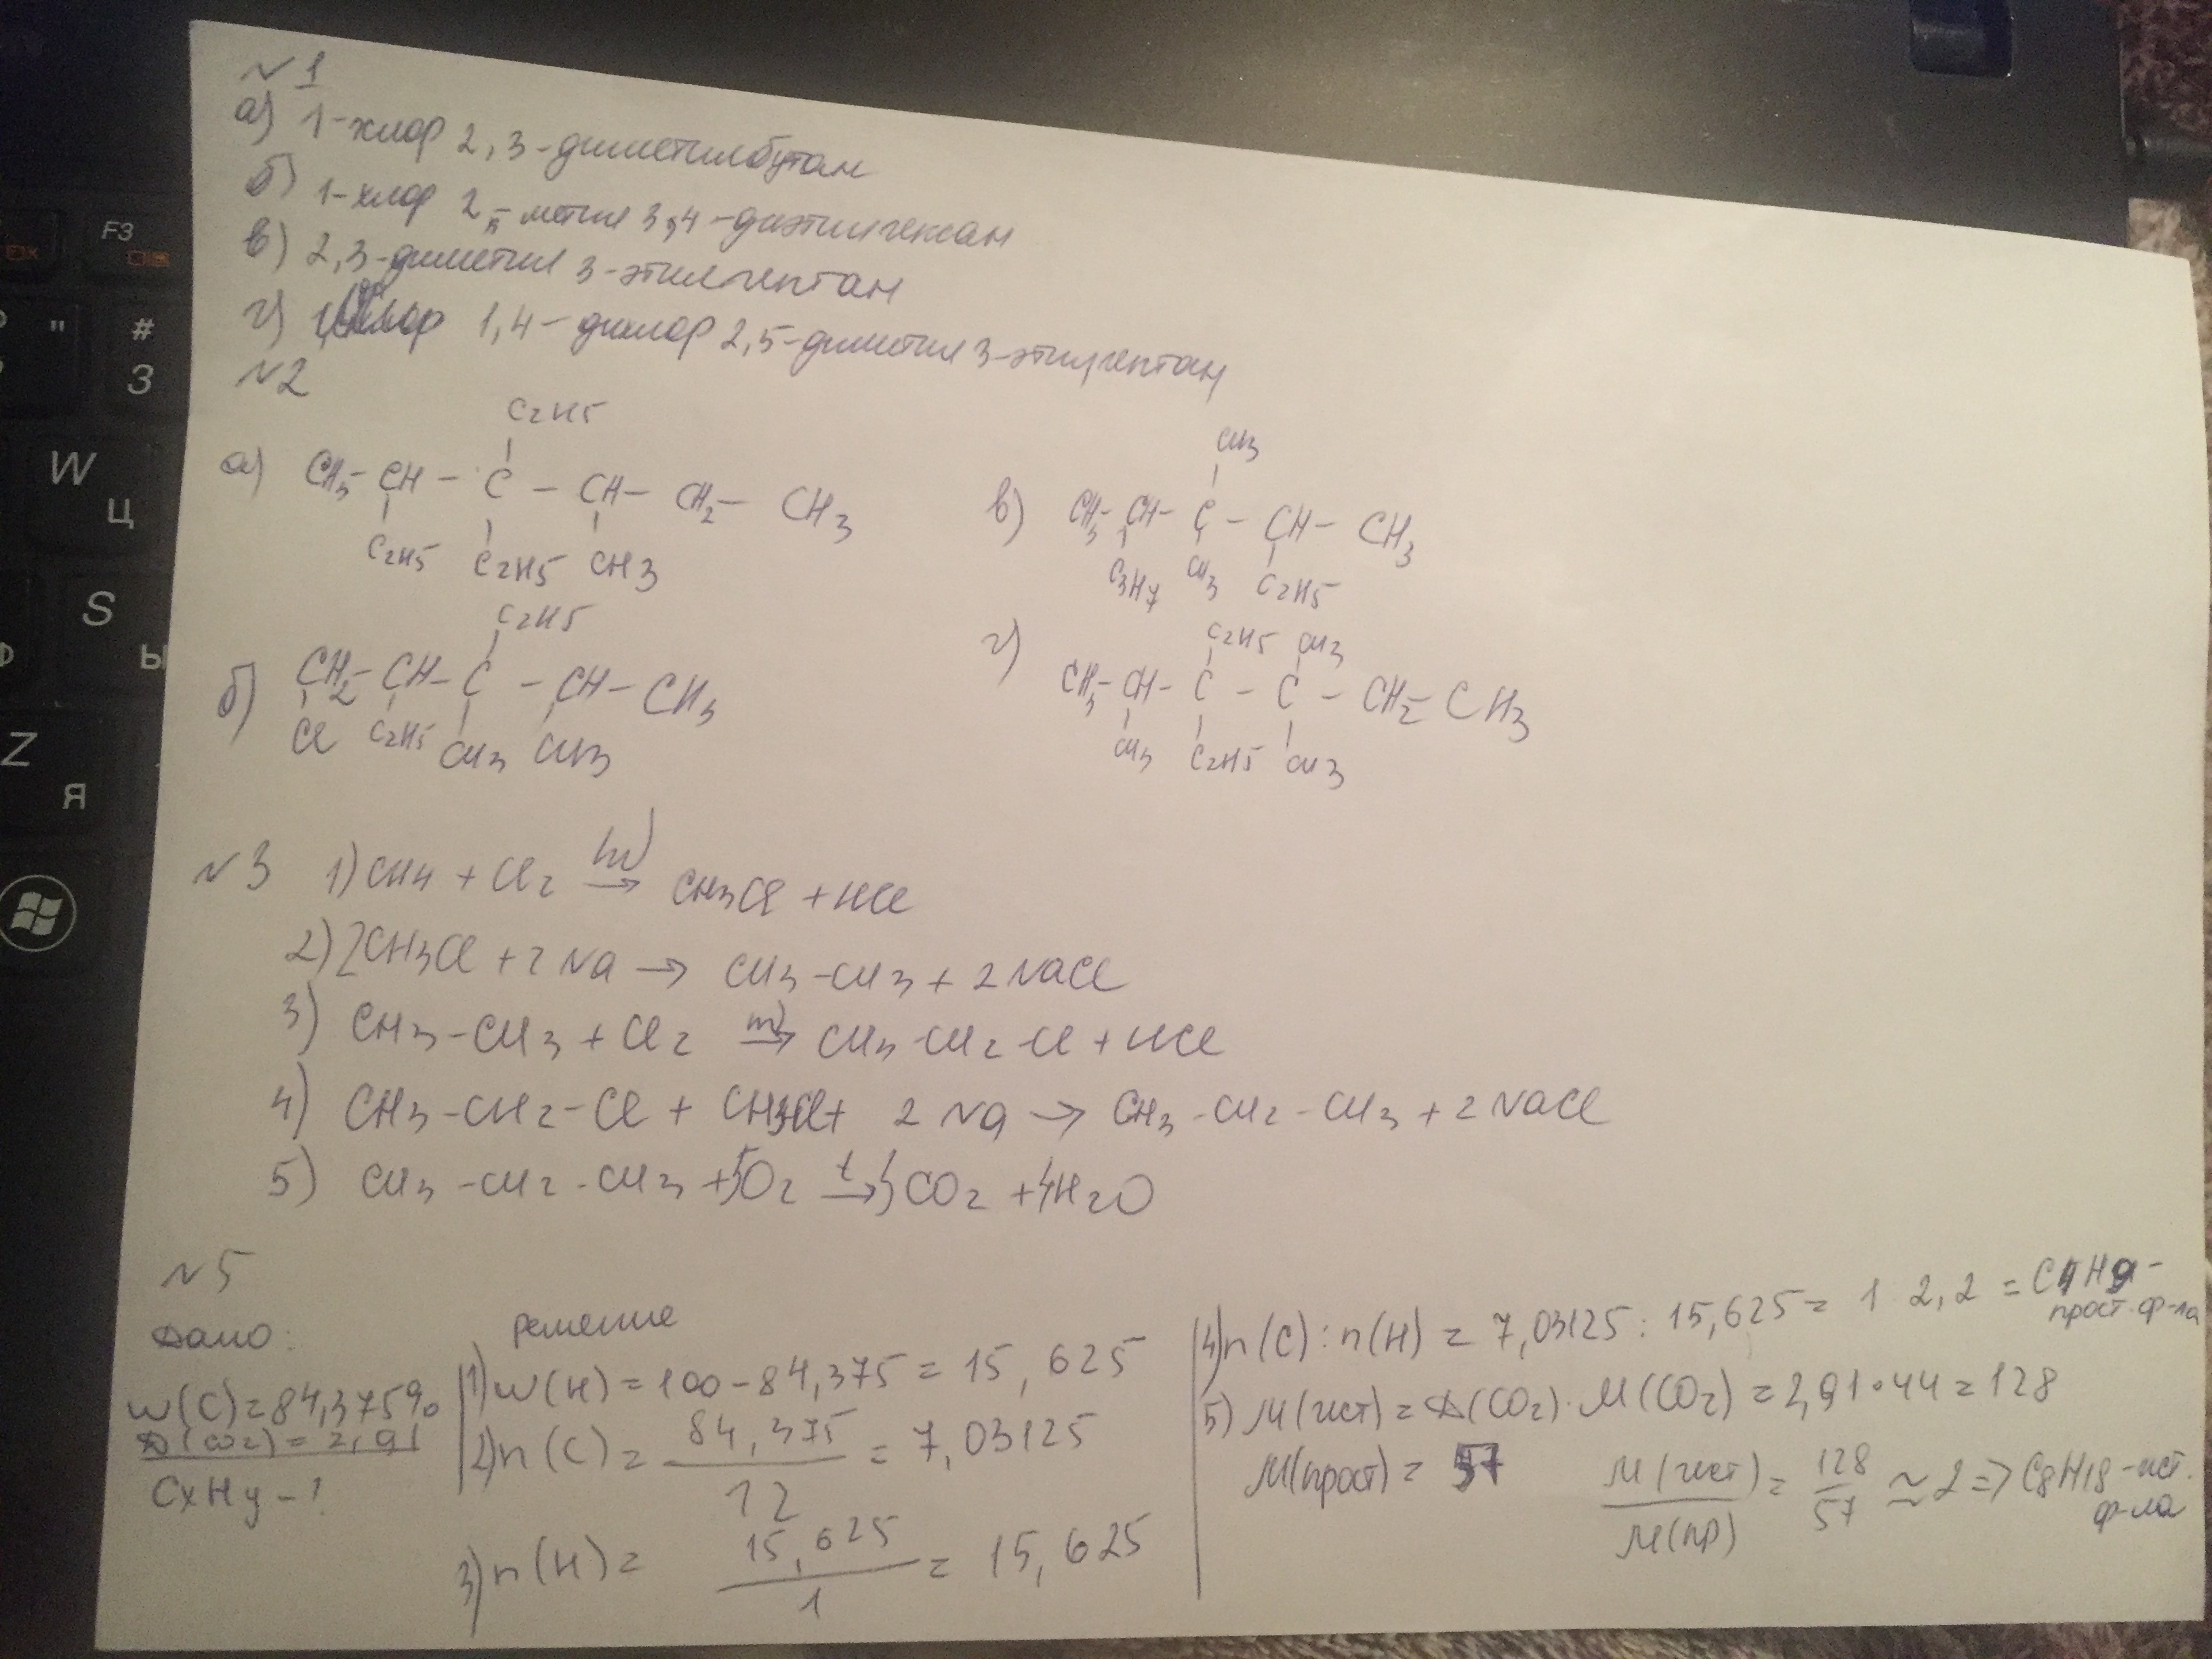 №1
а) 1-хлор 2,3-диметилбутан
б) 1-хлор 2-метил 3,4-диэтилгексан
в) 2,3-диметил 3-этилгептан
г) 1,4-дихлор 2,5-диметил 3-этилгептан
№2
C2H5
а) CH3-CH-C-CH-CH2-CH3
C2H5 C2H5 CH3
CH3
в) CH3-CH-C-CH-CH3
C3H7 CH3 C2H5
C2H5
б) CH2-CH-C-CH-CH3
Cl C2H5 CH3 CH3
C2H5 CH3
г) CH3-CH-C-C-CH2-CH3
CH3 C2H5 CH3
№3 1) CH4 + Cl2 →hν CH3Cl + HCl
2) 2CH3Cl + 2Na → CH3-CH3 + 2NaCl
3) CH3-CH3 + Cl2 → CH3-CH2-Cl + HCl
4) CH3-CH2-Cl + CH3Cl + 2Na → CH3-CH2-CH3 + 2NaCl
5) CH3-CH2-CH3 + 5O2 →t 3CO2 + 4H2O
№5
Дано:
w(C)=84,375%
D(CO2)=2,91
CxHy-?
решение
1) w(H)=100-84,375=15,625
2) n(C)=84,375/12=7,03125
3) n(H)=15,625/1=15,625
4) n(C):n(H)=7,03125:15,625=1 2,2=C4H9-
прост. ф-ла
5) M(ист)=D(CO2)·M(CO2)=2,91·44=128
M(прост)=57 M(ист)/M(пр)=128/57≈2=>C8H18-ист.
ф-ла
F3
"
#
3
W
Ц
S
Ы
Z
Я